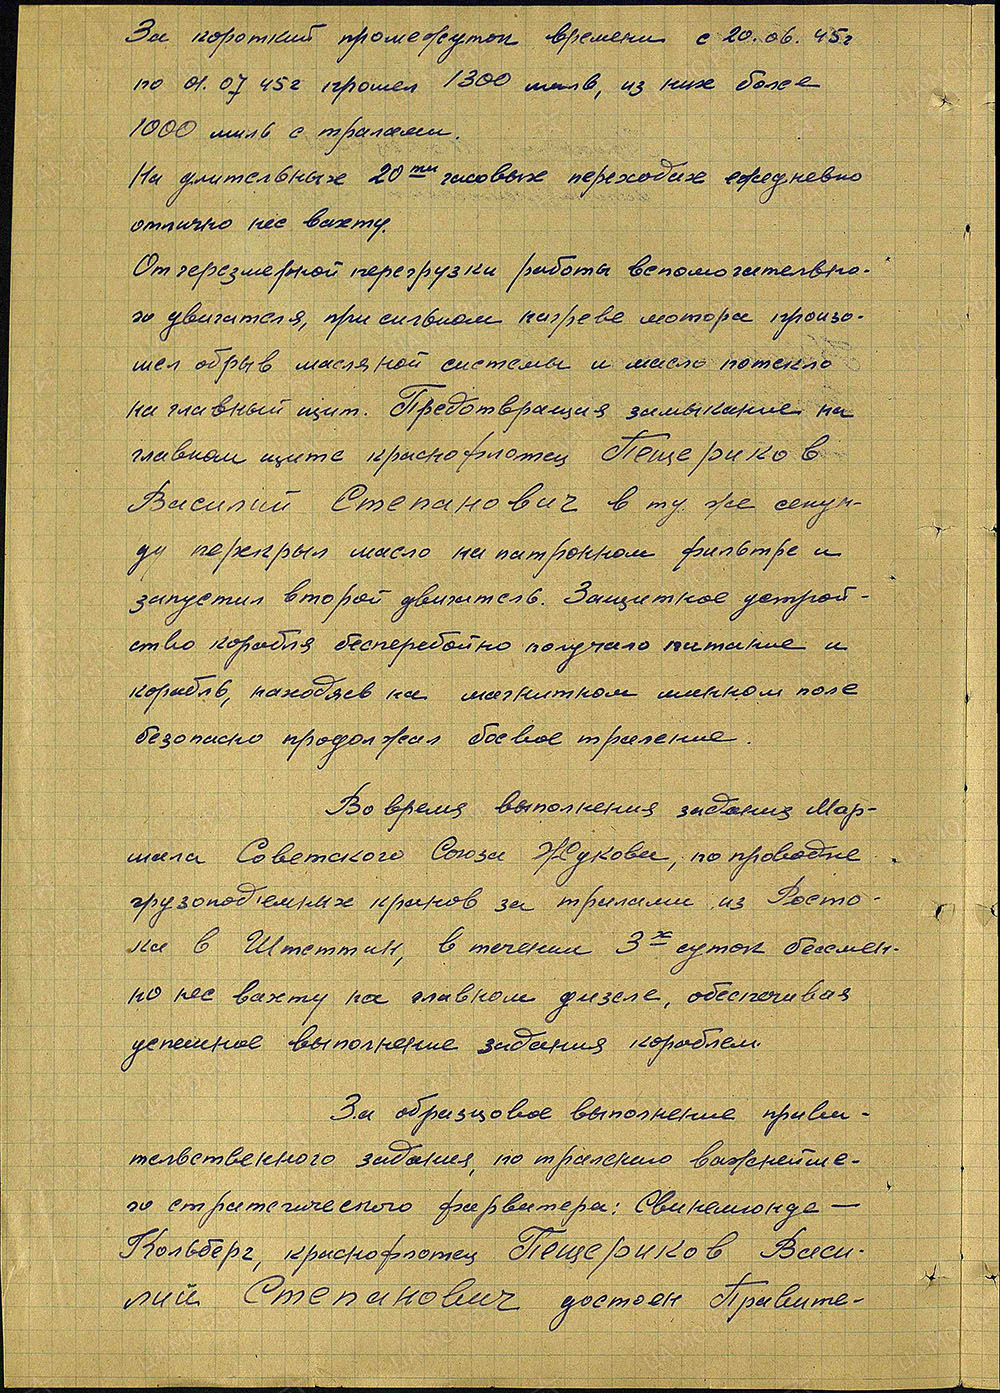 За короткий промежуток времени с 20.06.45г
по 01.07 45г прошел 1300 миль, из них более
1000 миль с тралами.
На длительных 20ти часовых переходах ежедневно
отлично нес вахту.
От черезмерной перегрузки работы вспомогательно-
го двигателя, при сильном нагреве мотора произо-
шел обрыв масляной системы и масло потекло
на главный щит. Предотвращая замыкание на
главном щите краснофлотец Пещериков
Василий Степанович в ту же секун-
ду перекрыл масло на патронном фильтре и
запустил второй двигатель. Защитное устрой-
ство корабля бесперебойно получало питание и
корабль, находясь на магнитном минном поле
безопасно продолжал боевое траление.
Во время выполнения задания Мар-
шала Советского Союза Жукова, по проводке
грузоподъемных кранов за тралами из Росто-
ка в Штеттин, в течении 3х суток бессмен-
но нес вахту на главном дизеле, обеспечивая
успешное выполнение задания кораблем.
За образцовое выполнение прави-
тельственного задания, по тралению важнейше-
го стратегического фарватера: Свинемюнде —
Кольберг, краснофлотец Пещериков Васи-
лий Степанович достоен Правите-